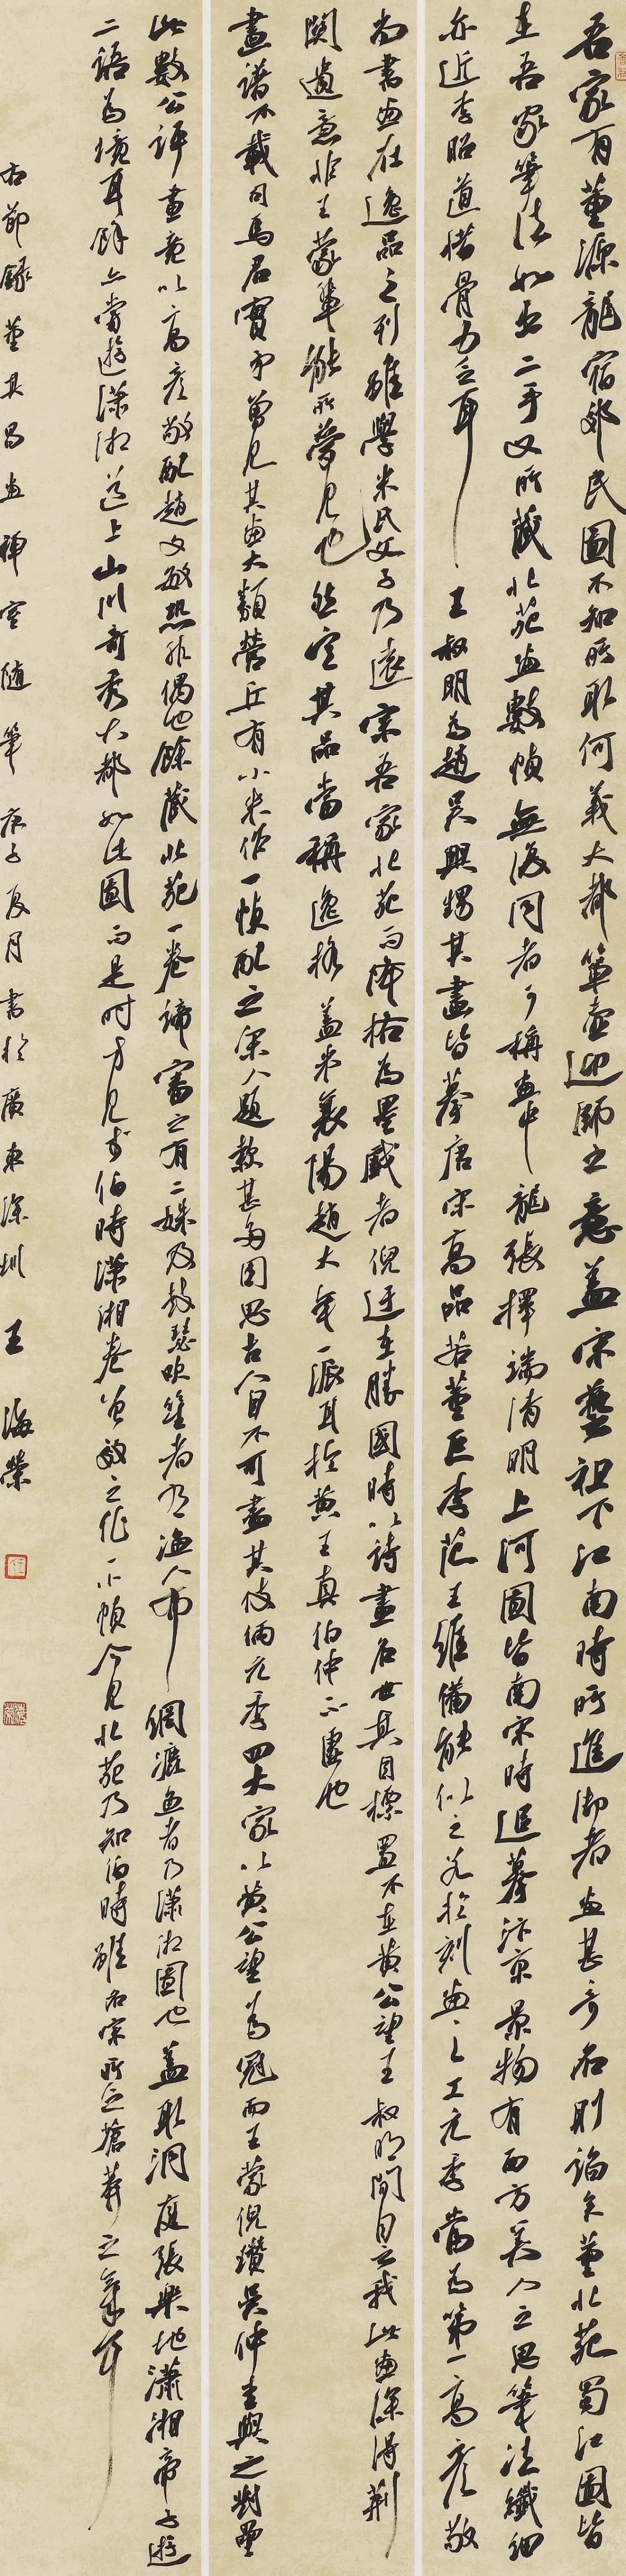 吾家有董源龍宿郊民圖不知所取何義大都簞壺迎師之意蓋宋藝祖下江南時所進御者畫甚奇名則諂矣董北苑蜀江圖皆
在吾家筆法如出二手又所藏北苑畫數幀無復同者可稱畫中龍張擇端清明上河圖皆南宋時追摹汴京景物有西方美人之思筆法纖細
亦近李昭道惜骨力乏耳 王叔明為趙吳興甥其畫皆摹唐宋高品若董巨李范王維備能似之若於刻畫之工元季當為第一高彥敬
尚書畫在逸品之列雖學米氏父子乃遠宗吾家北苑而降格為墨戲者倪迂在勝國時以詩畫名世其自標置不在黃公望王叔明間自云我此畫深得荊
關遺意非王蒙輩能所夢見也然定其品當稱逸格蓋米襄陽趙大年一派耳於黃王真伯仲不虛也
畫譜不載司馬君實而曾見其畫大類營丘有小米作一幀配之宋人題款甚多因思古人自不可盡其伎倆元季四大家以黃公望為冠而王蒙倪瓚吳仲圭與之對壘
此數公評畫竟以高彥敬配趙文敏恐非偶也餘藏北苑一卷諦審之有二姝及鼓瑟吹笙者有漁人布網漉魚者乃瀟湘圖也蓋取洞庭張樂地瀟湘帝子遊
二語為境耳餘亦嘗遊瀟湘道上山川奇秀大都如此圖而是時方見李伯時瀟湘卷曾效之作一小幀今見北苑乃知伯時雖名宗所乏蒼莽之氣耳
右節錄董其昌畫禪室隨筆庚子夏月書於廣東深圳王海榮